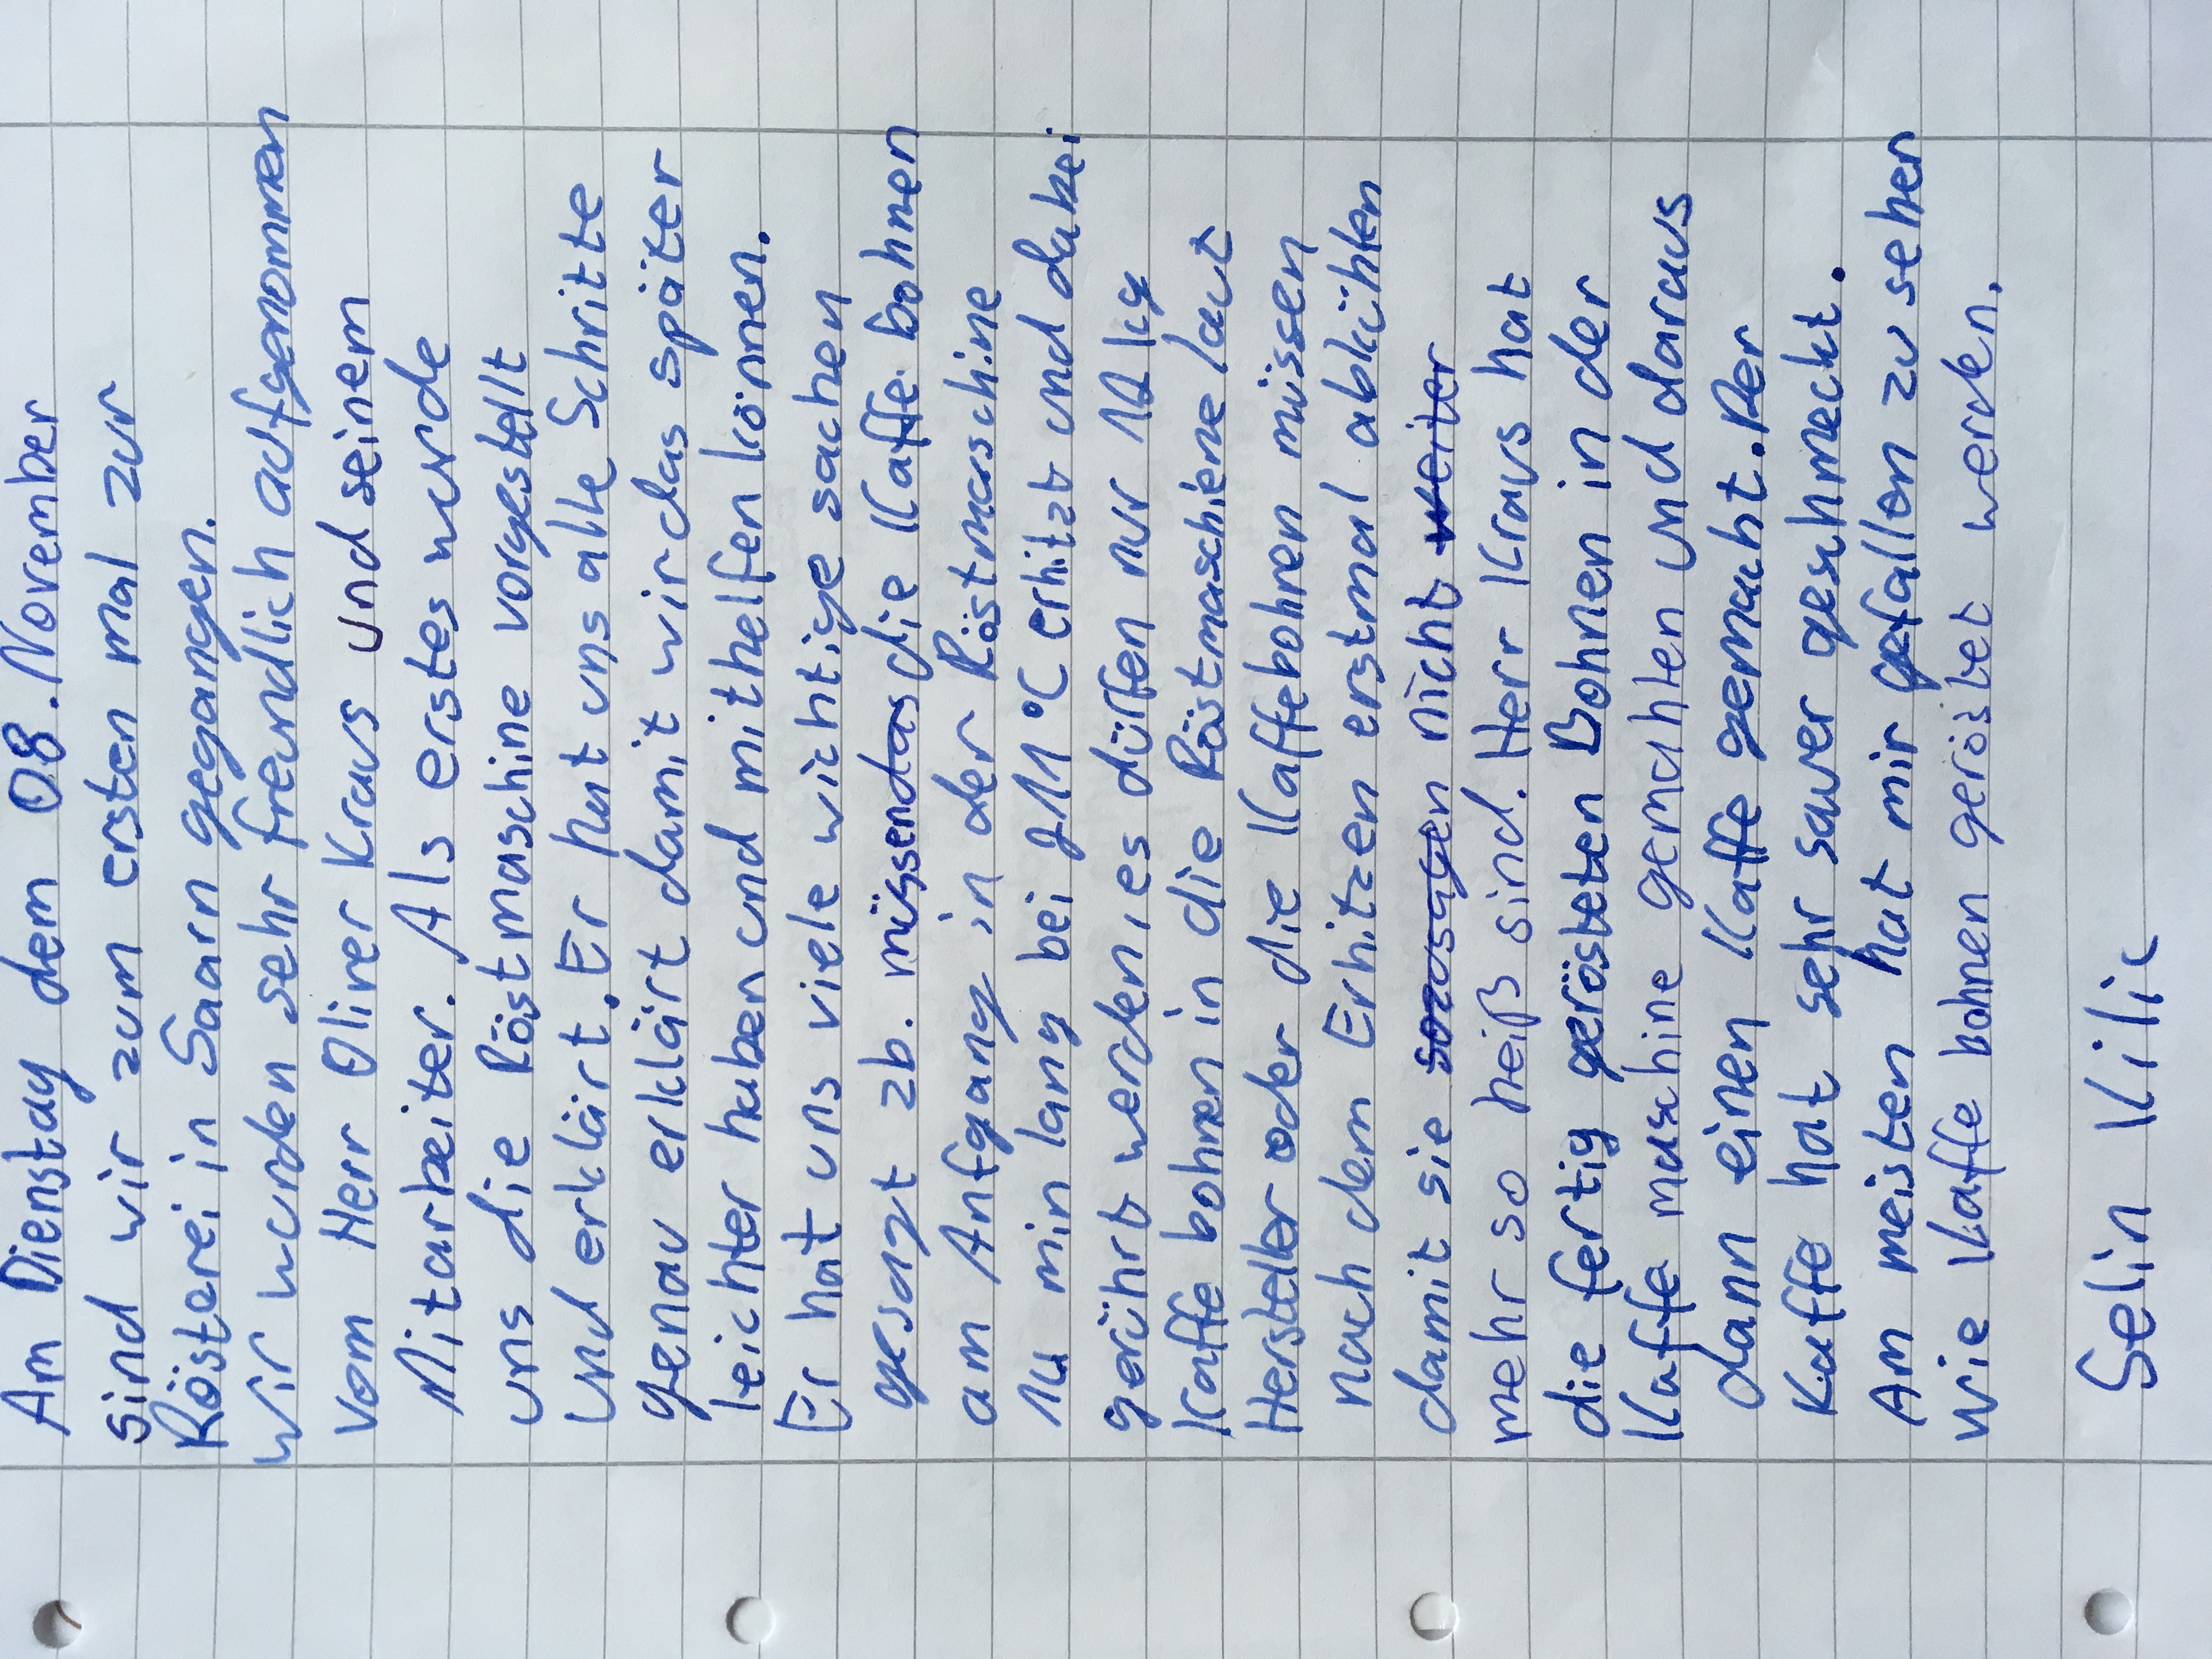 Am Dienstag dem 08. November
sind wir zum ersten mal zur
Rösterei in Saarn gegangen.
Wir wurden sehr freundlich aufgenommen
vom Herr Oliver Kraus und seinem
Mitarbeiter. Als erstes wurde
uns die Röstmaschine vorgestellt
und erklärt. Er hat uns alle Schritte
genau erklärt damit wir das später
leichter haben und mithelfen können.
Er hat uns viele wichtige sachen
gesagt zb. müssen das die Kaffe bohnen
am Anfgang in der Röstmaschine
14 min lang bei 211 °C erhitzt und dabei
gerührt werden, es dürfen nur 12 kg
Kaffe bohnen in die Röstmaschiene laut
Hersteller oder die Kaffebohnen müssen
nach dem Erhitzen erstmal abkühlen
damit sie sozusagen nicht weiter
mehr so heiß sind. Herr Kraus hat
die fertig gerösteten Bohnen in der
Kaffe maschine gemahlen und daraus
dann einen Kaffe gemacht. Der
Kaffe hat sehr sauer geschmeckt.
Am meisten hat mir gefallen zu sehen
wie Kaffe bohnen geröstet werden.
Selin Kilic